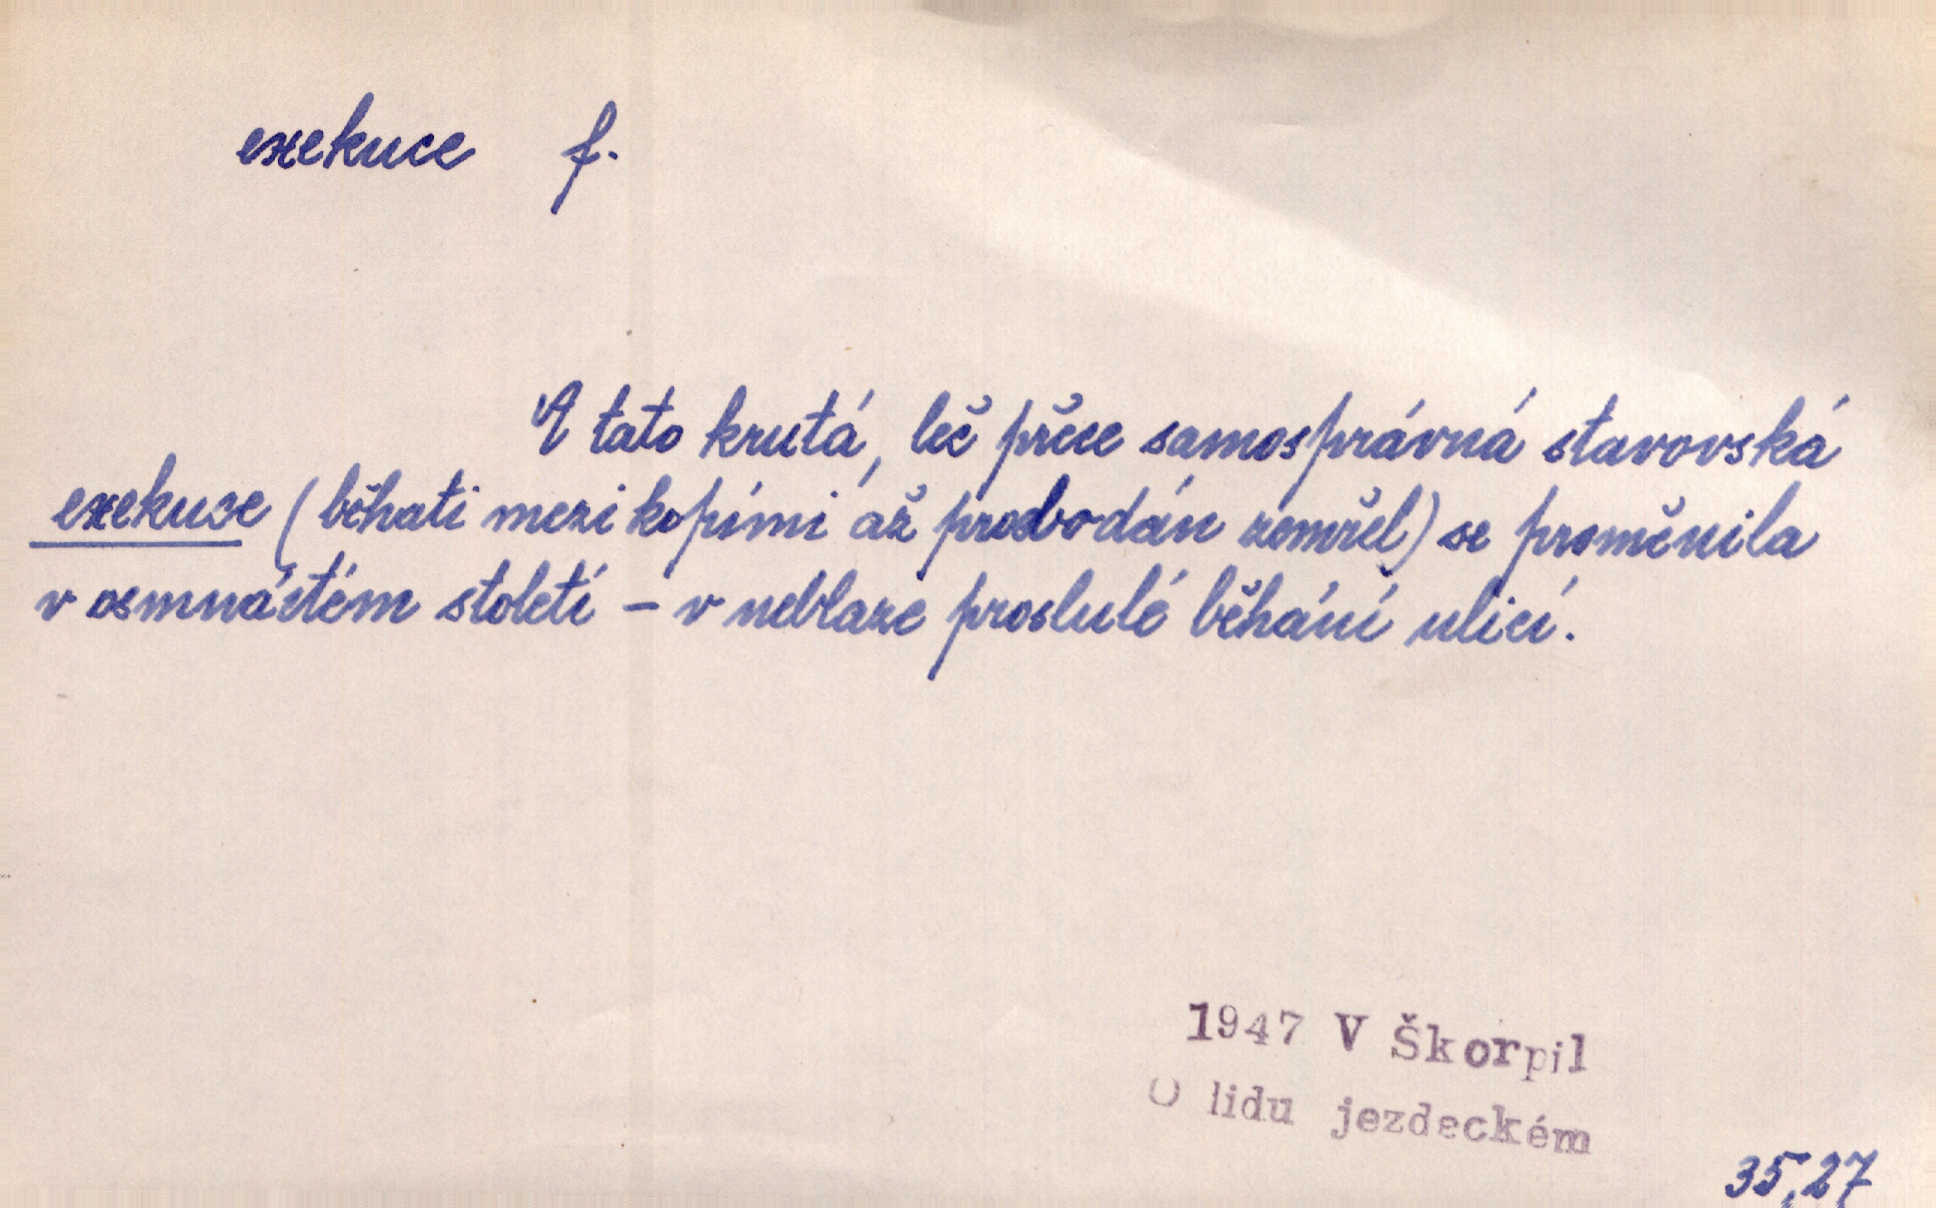 exekuce f.
A tato krutá, leč přece samosprávná stavovská
exekuce (běhati mezi kopími až probodán zemřel) se proměnila
v osmnáctém století – v neblaze proslulé běhání ulicí.
1947 V Škorpil
O lidu jezdeckém
35,27